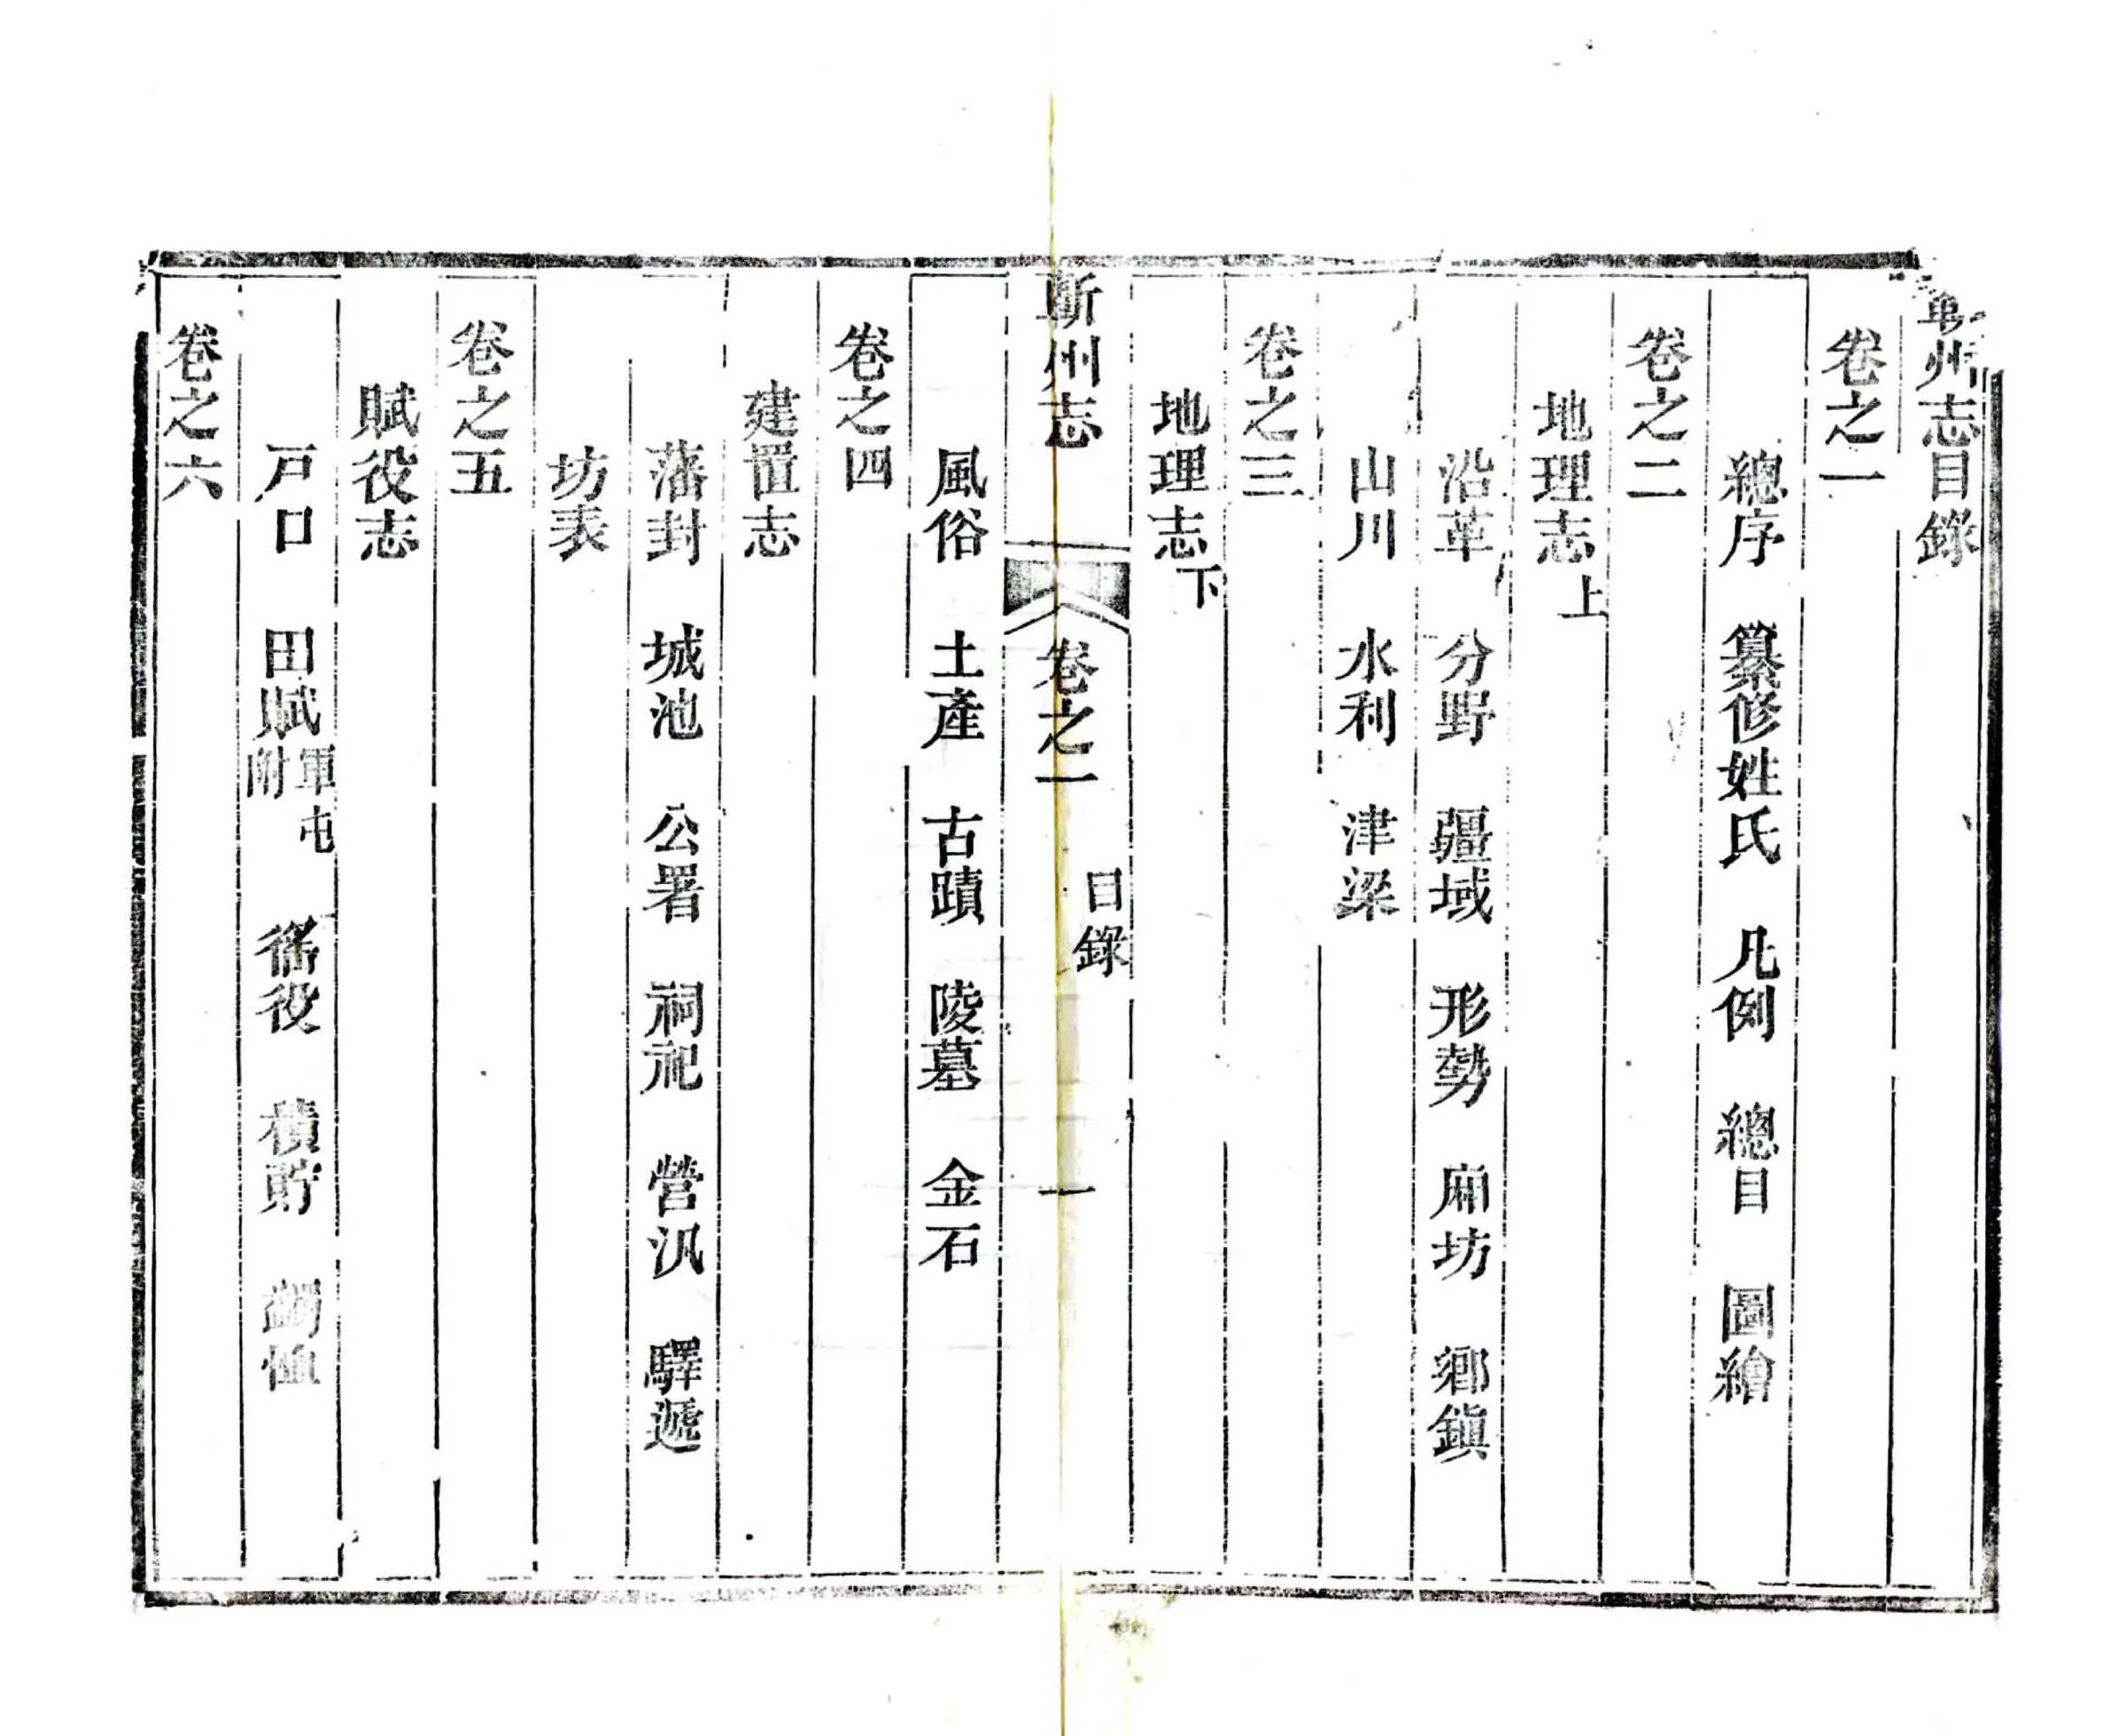 州志目錄
卷之一
總序 纂修姓氏 凡例 總目 圖繪
卷之二
地理志上
沿革 分野 疆域 形勢 廂坊 鄉鎭
山川 水利 津梁
卷之三
地理志下
蘄州志 卷之一 目錄 一
風俗 土產 古蹟 陵墓 金石
卷之四
建置志
藩封 城池 公署 祠祀 營汛 驛遞
坊表
卷之五
賦役志
戸口 田賦軍屯附 徭役 積貯 蠲恤
卷之六